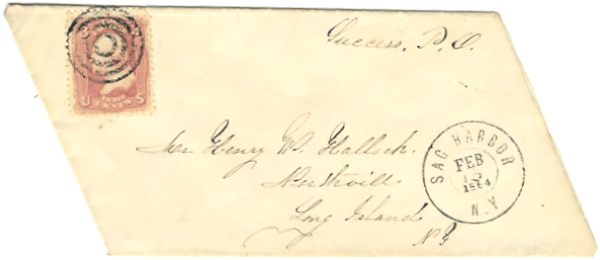 Success, P.O.
3 3
U THREE CENTS S
Mr Henry W. Hallock.
Northville
Long Island
N.Y
SAG HARBOR
FEB
1864
N.Y